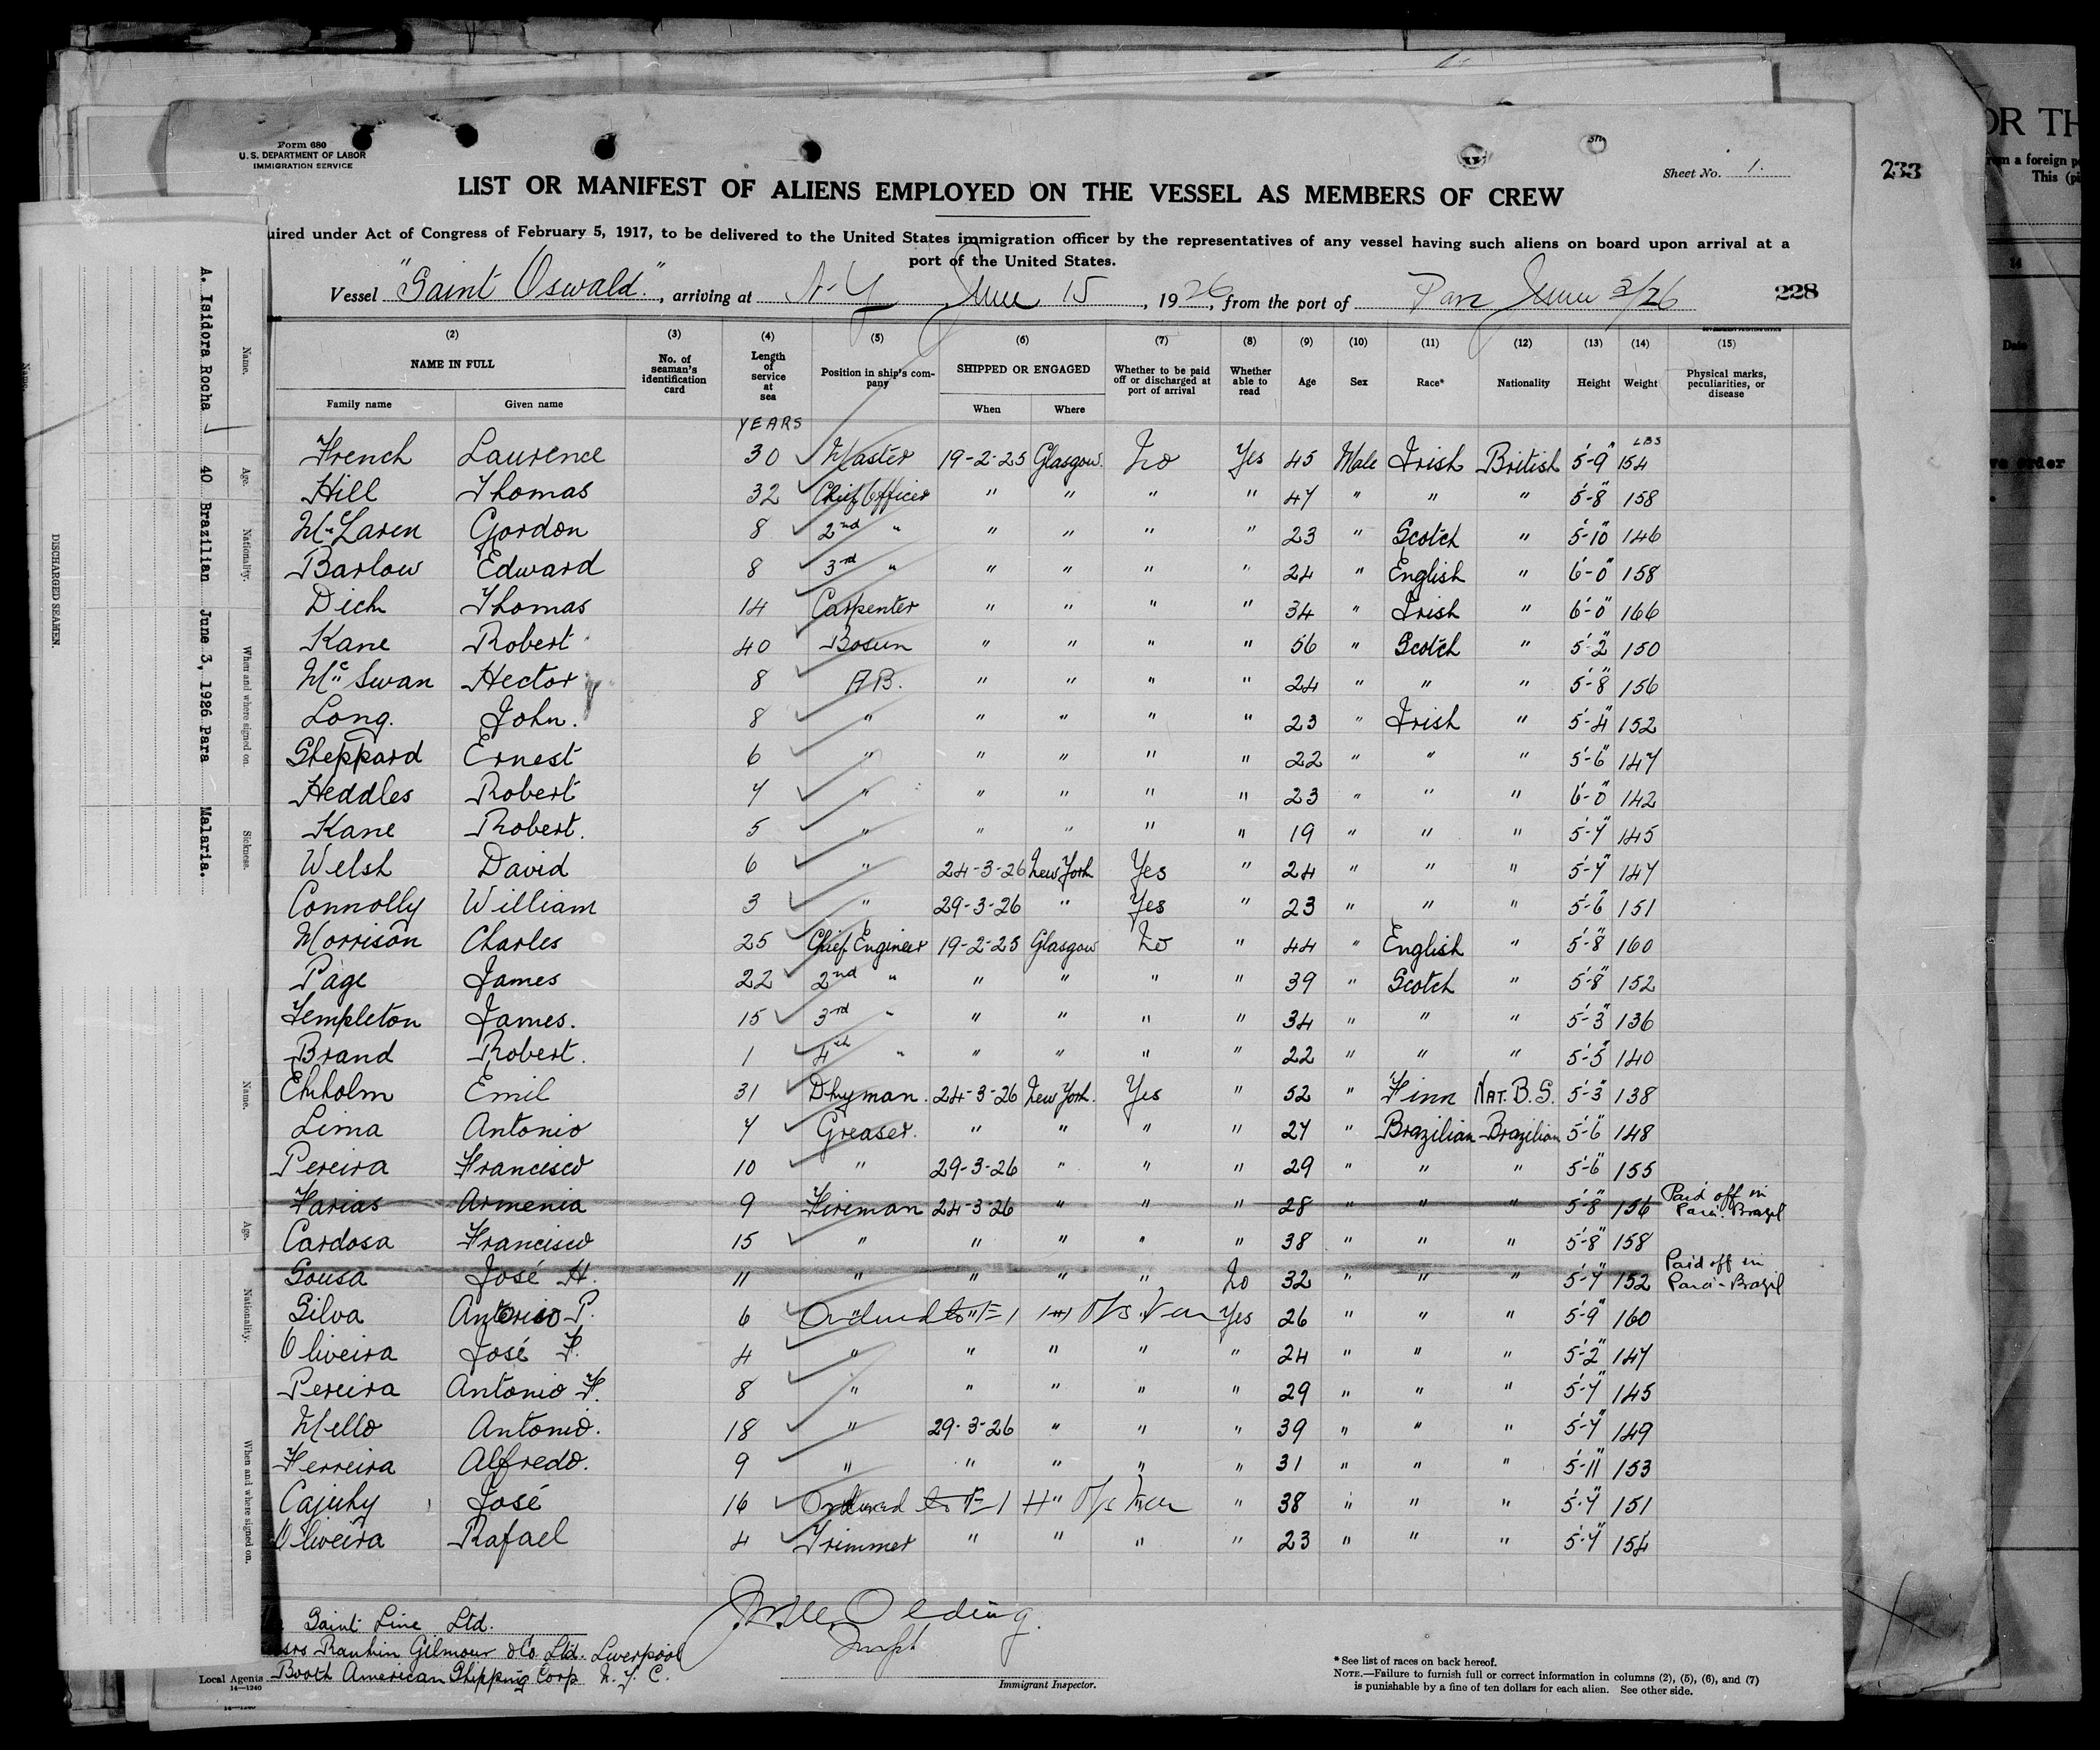 Form 680
U. S. DEPARTMENT OF LABOR
IMMIGRATION SERVICE
Sheet No. 1.
233
LIST OR MANIFEST OF ALIENS EMPLOYED ON THE VESSEL AS MEMBERS OF CREW
uired under Act of Congress of February 5, 1917, to be delivered to the United States immigration officer by the representatives of any vessel having such aliens on board upon arrival at a
port of the United States.
Vessel "Saint Oswald", arriving at N-Y June 15, 1926, from the port of Para June 3/26
228
(2) (3) (4) (5) (6) (7) (8) (9) (10) (11) (12) (13) (14) (15)
NAME IN FULL No. of seaman's identification card Length of service at sea Position in ship's company SHIPPED OR ENGAGED Whether to be paid off or discharged at port of arrival Whether able to read Age Sex Race* Nationality Height Weight Physical marks, peculiarities, or disease
Family name Given name When Where
YEARS LBS
French Laurence 30 Master 19-2-25 Glasgow. No Yes 45 Male Irish British 5'-9" 154
Hill Thomas 32 Chief Officer " " " " 47 " " " 5'-8" 158
McLaren Gordon 8 2nd " " " " " 23 " Scotch " 5'-10" 146
Barlow Edward 8 3rd " " " " " 24 " English " 6'-0" 158
Dick Thomas 14 Carpenter " " " " 34 " Irish " 6'-0" 166
Kane Robert 40 Bosun " " " " 56 " Scotch " 5'-2" 150
Mc Swan Hector 8 A.B. " " " " 24 " " " 5'-8" 156
Long. John. 8 " " " " " 23 " Irish " 5'-4" 152
Sheppard Ernest 6 " " " " " 22 " " " 5'-6" 147
Heddles Robert 7 " " " " " 23 " " " 6'-0" 142
Kane Robert. 5 " " " " " 19 " " " 5'-7" 145
Welsh David 6 " 24-3-26 New York Yes " 24 " " " 5'-7" 147
Connolly William 3 " 29-3-26 " Yes " 23 " " " 5'-6" 151
Morrison Charles 25 Chief Engineer 19-2-25 Glasgow No " 44 " English " 5'-8" 160
Page James 22 2nd " " " " " 39 " Scotch " 5'-8" 152
Templeton James. 15 3rd " " " " " 34 " " " 5'-3" 136
Brand Robert. 1 4th " " " " " 22 " " " 5'-5" 140
Ekholm Emil 31 Dkyman. 24-3-26 New York. Yes " 52 " Finn NAT. B. S. 5'-3" 138
Lima Antonio 7 Greaser. " " " " 27 " Brazilian Brazilian 5'-6" 148
Pereira Francisco 10 " 29-3-26 " " " 29 " " " 5'-6" 155
Farias Armenia 9 Fireman 24-3-26 " " " 28 " " " 5'-8" 156 Paid off in Pará-Brazil
Cardosa Francisco 15 " " " " " 38 " " " 5'-8" 158
Sousa José H. 11 " " " " No 32 " " " 5'-7" 152 Paid off in Pará-Brazil
Silva Antonio P. 6 Ordered to Yes 26 " " " 5'-9" 160
Oliveira José F. 4 " " " " " 24 " " " 5'-2" 147
Pereira Antonio F. 8 " " " " " 29 " " " 5'-7" 145
Mello Antonio. 18 " 29-3-26 " " " 39 " " " 5'-7" 149
Ferreira Alfredo. 9 " " " " " 31 " " " 5'-11" 153
Cajuhy José 16 Ordered to " 38 " " " 5'-7" 151
Oliveira Rafael 4 Trimmer " " " " 23 " " " 5'-7" 154
Saint Line Ltd.
srs Rankin Gilmour & Co. Ltd. Liverpool
Local Agents Booth American Shipping Corp N. Y. C.
14—1240
Immigrant Inspector.
* See list of races on back hereof.
NOTE.—Failure to furnish full or correct information in columns (2), (5), (6), and (7)
is punishable by a fine of ten dollars for each alien. See other side.
DISCHARGED SEAMEN.
Name. Age. Nationality. When and where signed on. Sickness.
A. Isidora Rocha 40 Brazilian June 3, 1926 Para Malaria.
Name. Age. Nationality. When and where signed on.
OR TH
m a foreign p
This (pi
14
Date
order